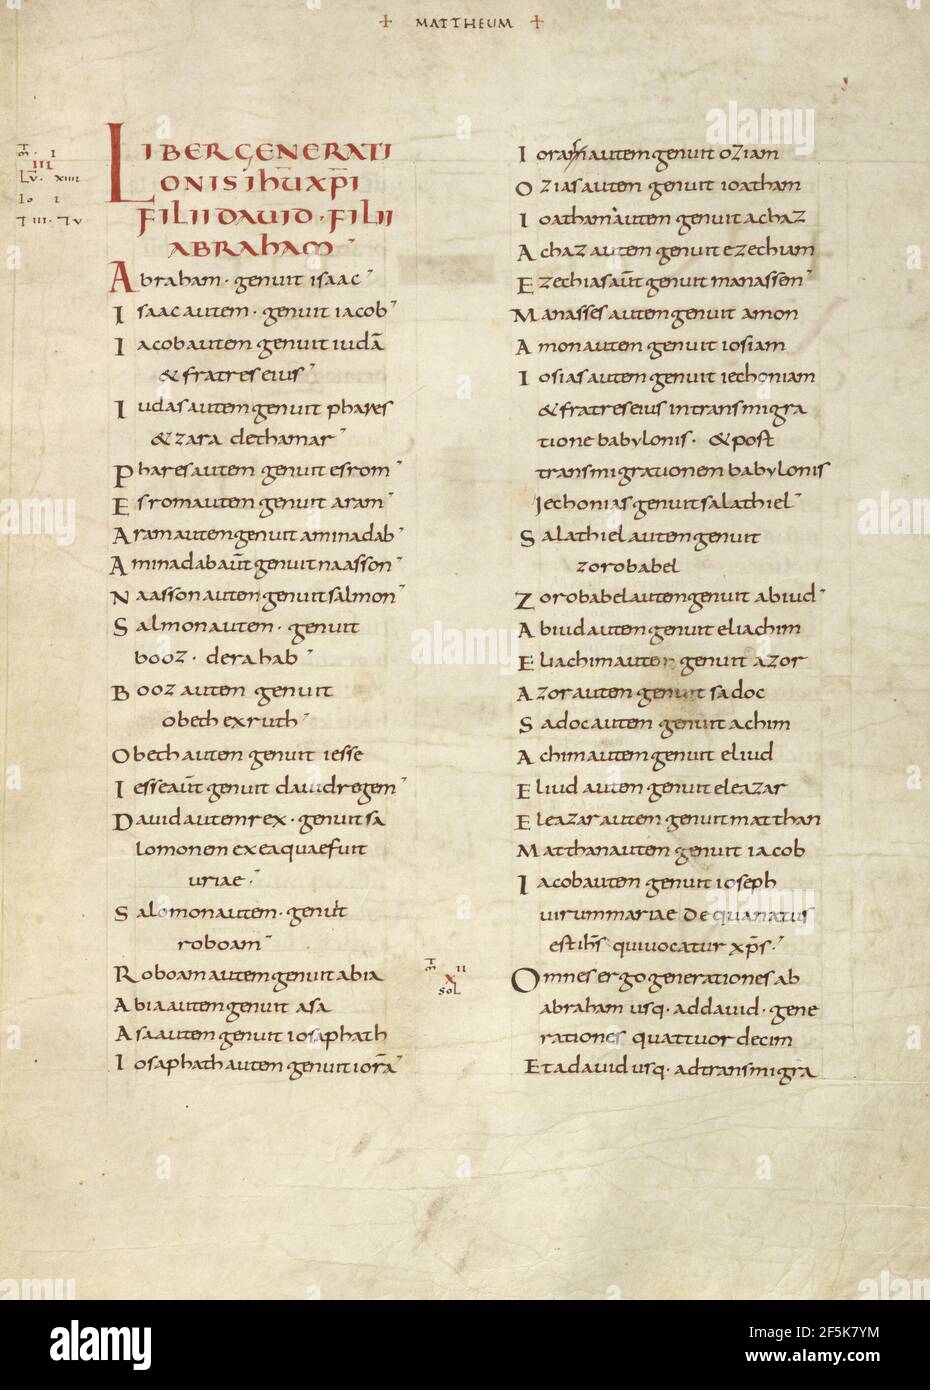 + MATTHEUM +
LIBER GENERATI
ONIS IHU XPI
FILII DAVID · FILII
ABRAHAM
Abraham · genuit isaac
Isaac autem · genuit iacob
Iacob autem genuit iudā
& fratres eius
Iudas autem genuit phares
& zara dethamar
Phares autem genuit esrom
Esrom autem genuit aram
Aram autem genuit aminadab
Aminadab aut̄ genuit naasson
Naasson autem genuit salmon
Salmon autem · genuit
booz · derahab
Booz autem genuit
obeth exruth
Obeth autem genuit iesse
Iesse aut̄ genuit david regem
David autem rex · genuit sa
lomonem ex ea quae fuit
uriae ·
Salomon autem · genuit
roboam
Roboam autem genuit abia
Abia autem genuit asa
Asa autem genuit iosaphath
Iosaphath autem genuit iorā
Ioram autem genuit oziam
Ozias autem genuit ioatham
Ioatham autem genuit achaz
Achaz autem genuit ezechiam
Ezechias aut̄ genuit manassen
Manasses autem genuit amon
Amon autem genuit iosiam
Iosias autem genuit iechoniam
& fratres eius in transmigra
tione babylonis · & post
transmigrationem babylonis
Iechonias genuit salathiel
Salathiel autem genuit
zorobabel
Zorobabel autem genuit abiud
Abiud autem genuit eliachim
Eliachim autem genuit azor
Azor autem genuit sadoc
Sadoc autem genuit achim
Achim autem genuit eliud
Eliud autem genuit eleazar
Eleazar autem genuit matthan
Matthan autem genuit iacob
Iacob autem genuit ioseph
virum mariae de qua natus
est ih̄s qui vocatur xp̄s ·
Omnes ergo generationes ab
abraham usq· ad david · gene
rationes quattuor decim
Et a david usq· ad transmigra
II
X
sol
alamy
Image ID: 2F5K7YM
www.alamy.com